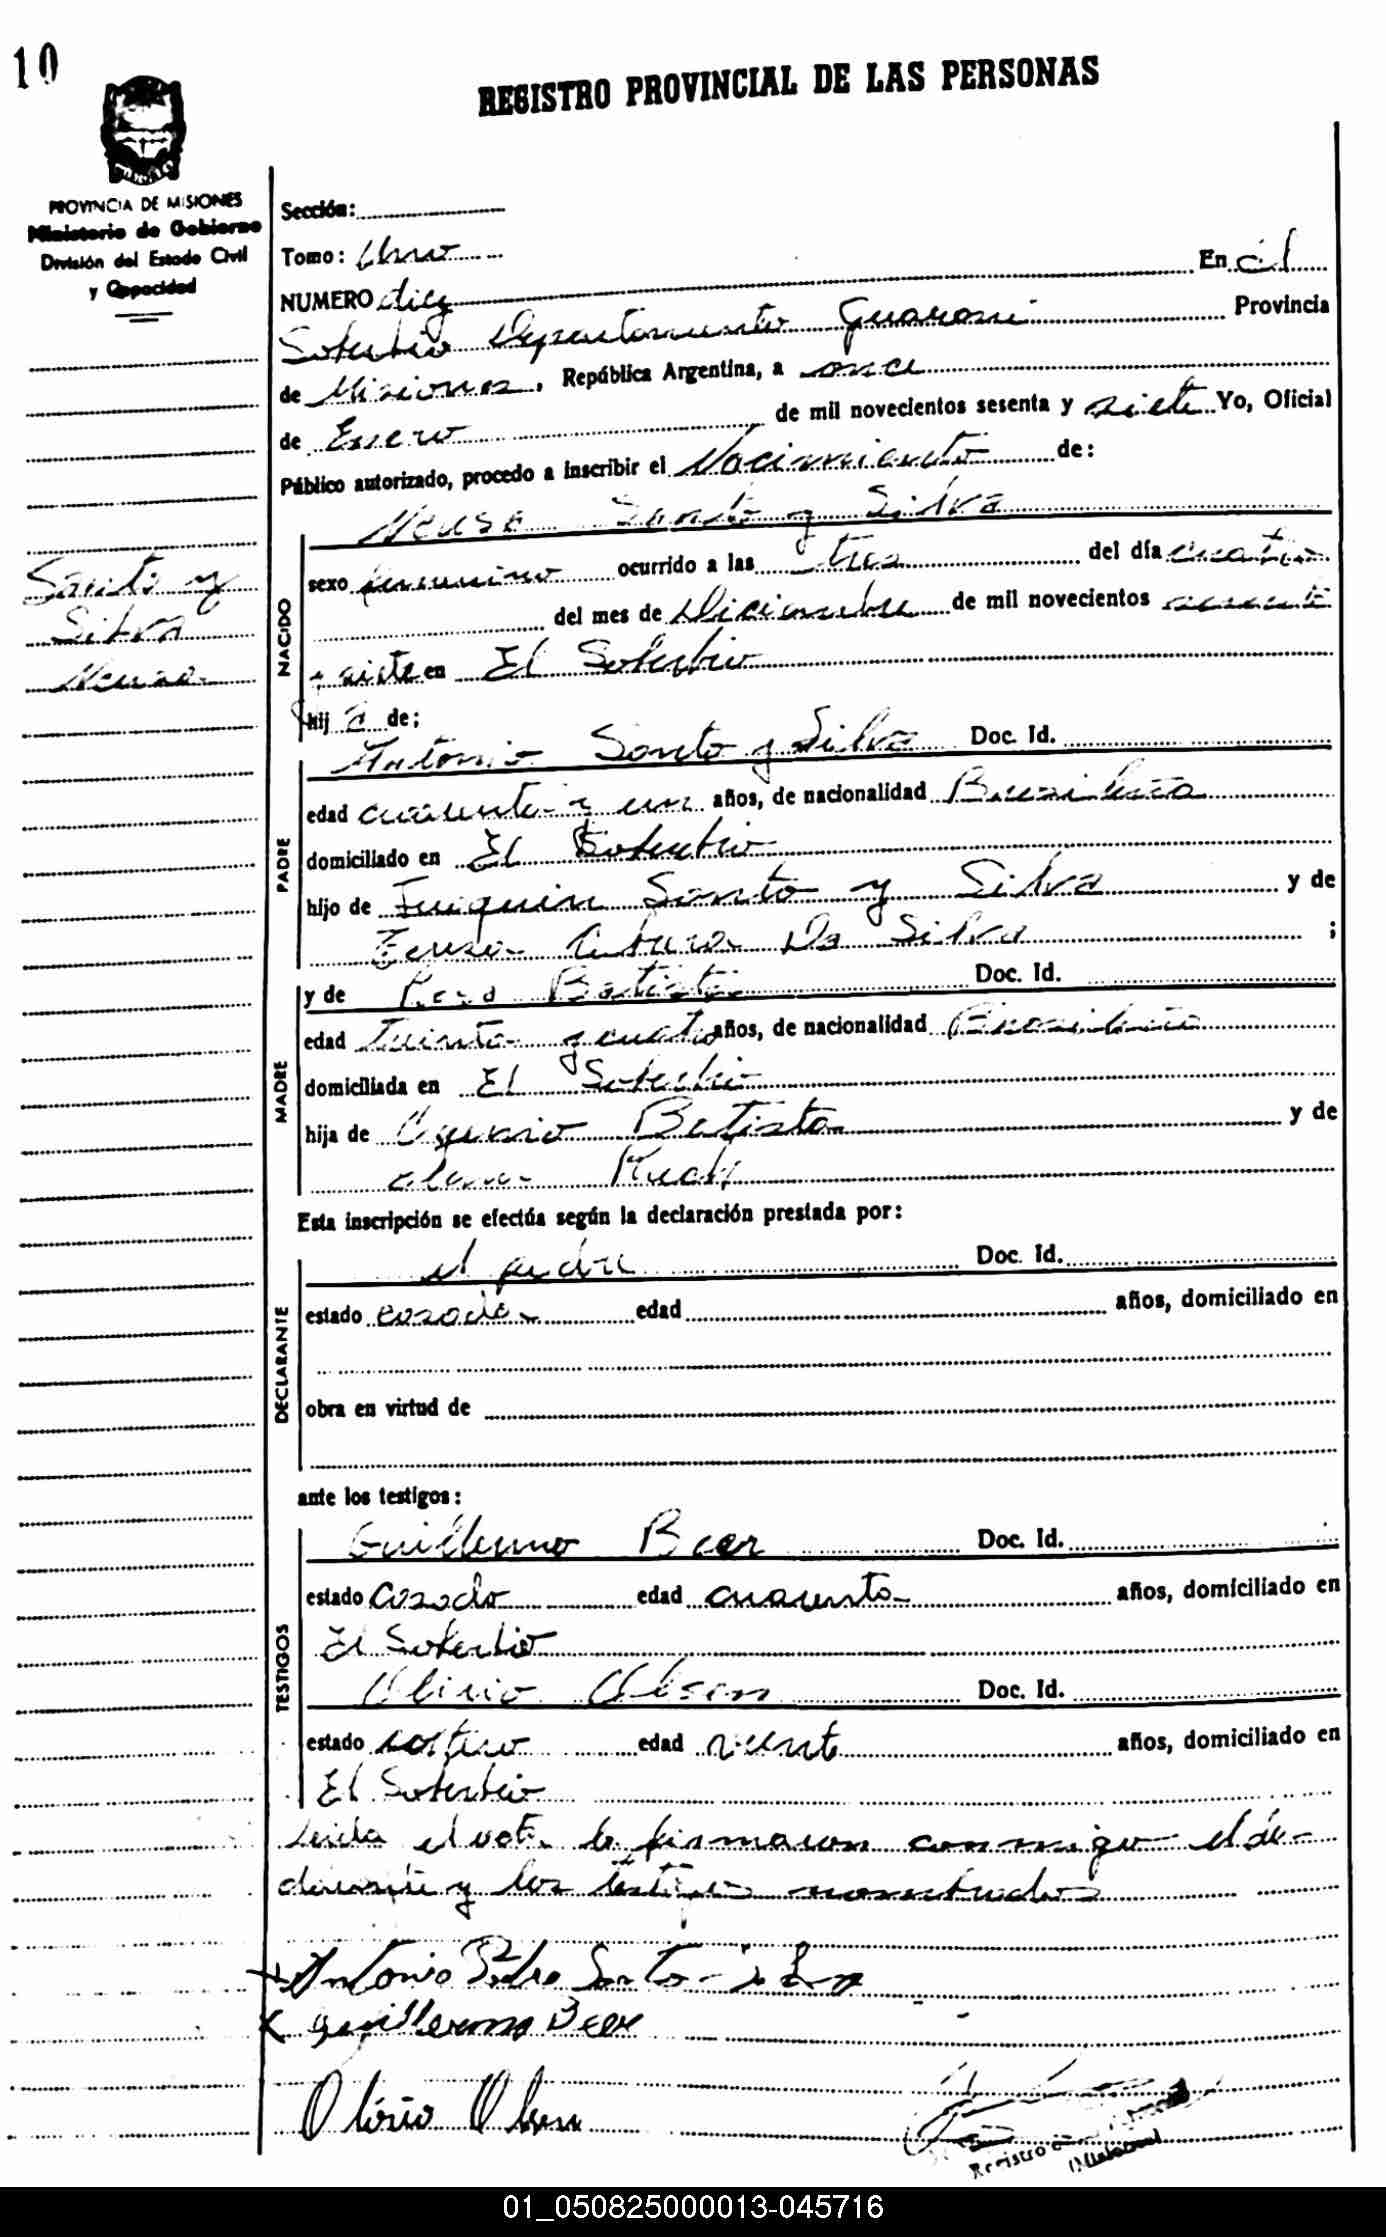 10
REGISTRO PROVINCIAL DE LAS PERSONAS
PROVINCIA DE MISIONES
Ministerio de Gobierno
División del Estado Civil
y Capacidad
Sección:
Tomo: Uno
NUMERO diez En El
Soberbio Departamento Guarani Provincia
de Misiones, República Argentina, a once
de Enero de mil novecientos sesenta y siete Yo, Oficial
Público autorizado, procedo a inscribir el Nacimiento de:
Neusa Santo y Silva
Santo y
Silva
Neusa
NACIDO
sexo femenino ocurrido a las tres del día cuatro
del mes de Diciembre de mil novecientos
y siete en El Soberbio
hija de:
PADRE
Antonio Santo y Silva Doc. Id.
edad cuarenta y un años, de nacionalidad Brasileña
domiciliado en El Soberbio
hijo de Santo y Silva y de
Da Silva ;
MADRE
y de Rosa Batista Doc. Id.
edad treinta y cuatro años, de nacionalidad Brasileña
domiciliada en El Soberbio
hija de Batista y de
Esta inscripción se efectúa según la declaración prestada por:
DECLARANTE
el padre Doc. Id.
estado casado edad años, domiciliado en
obra en virtud de
ante los testigos:
TESTIGOS
Guillermo Beer Doc. Id.
estado casado edad cuarenta años, domiciliado en
El Soberbio
Olirio Olsen Doc. Id.
estado soltero edad veinte años, domiciliado en
El Soberbio
Leida el acta la firmaron conmigo el de-
clarante y los testigos nombrados
Antonio Pedro Santo Silva
Guillermo Beer
Olirio Olsen
Registro
(Misiones)
01_050825000013-045716